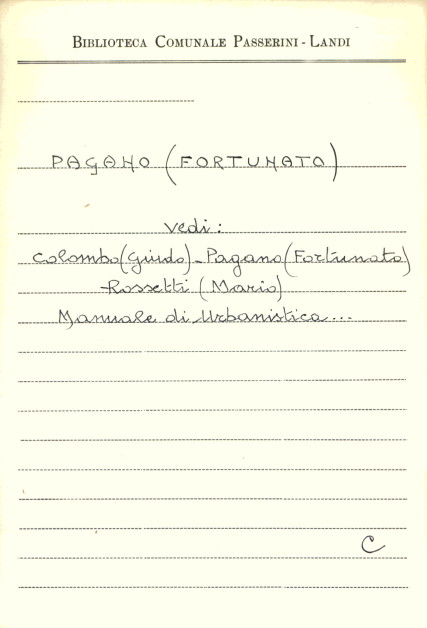 BIBLIOTECA COMUNALE PASSERINI - LANDI
PAGANO (FORTUNATO)
vedi:
Colombo (Guido) - Pagano (Fortunato)
Rossetti (Mario)
Manuale di Urbanistica...
C